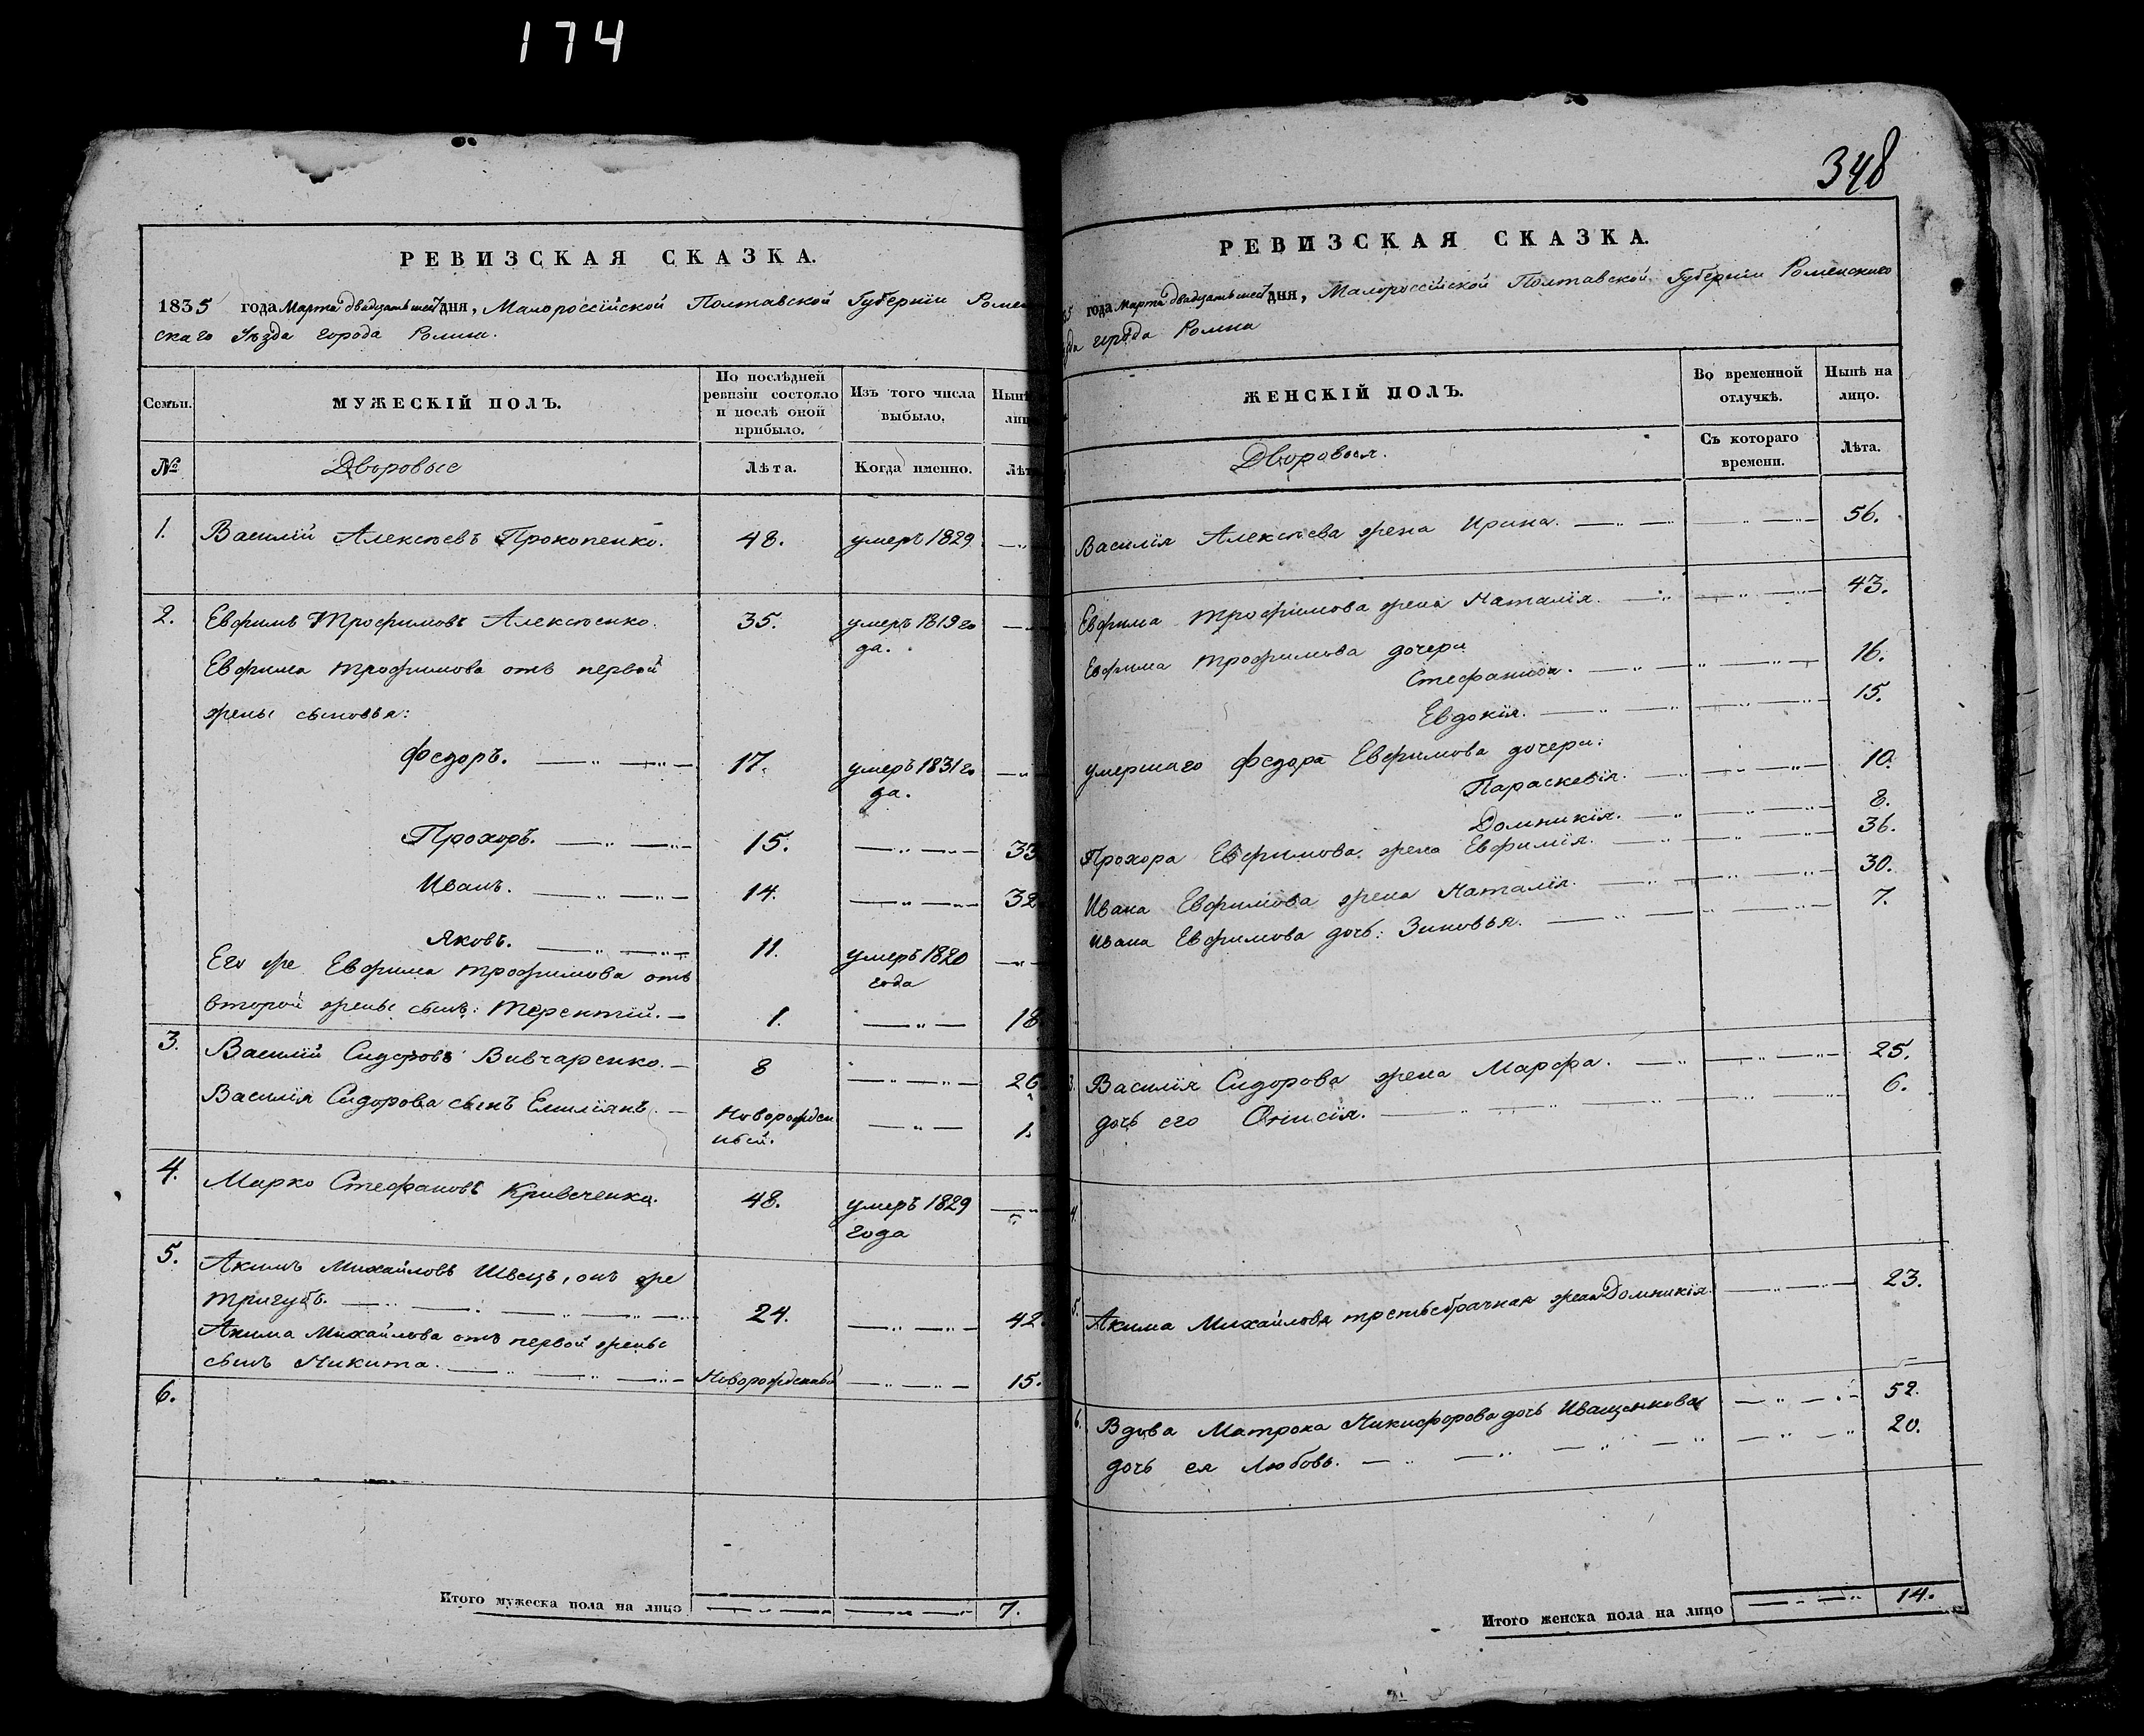 174
РЕВИЗСКАЯ СКАЗКА.
1835 года Марта двадцать дня, Малороссійской Полтавской Губерніи Ромен
скаго Уѣзда города Ромна.
Семьи.
МУЖЕСКІЙ ПОЛЪ.
По послѣдней
ревизіи состояло
и послѣ оной
прибыло.
Изъ того числа
выбыло,
№
Дворовые
Лѣта.
Когда именно.
1. Василій Алексѣевъ Прокопенко. 48. умеръ 1829
2. Евфимъ Трофимовъ Алексѣенко. 35. умеръ 1819 го
да.
Евфима Трофимова отъ первой
жены сыновья:
Федоръ. 17. умеръ 1831 го
да.
Прохоръ. 15. 33
Иванъ. 14. 32
Яковъ. 11. умеръ 1820
года
Его же Евфима Трофимова отъ
второй жены сынъ: Терентій. 1. 18
3. Василій Сидоровъ Вивчаренко. 8 26
Василія Сидорова сынъ Емиліянъ. Новорожден
ный. 1.
4. Марко Стефановъ Кривеченко. 48. умеръ 1829
года
5. Акимъ Михайловъ Швецъ, онъ же
Тригубъ. 24. 42.
Акима Михайлова отъ первой жены
сынъ Никита. Новорожденный 15.
6.
Итого мужеска пола на лицо 7.
348
РЕВИЗСКАЯ СКАЗКА.
35 года Марта двадцать дня, Малороссійской Полтавской Губерніи Роменскаго
да города Ромна
ЖЕНСКІЙ ПОЛЪ.
Во временной
отлучкѣ.
Нынѣ на
лицо.
Дворовыя.
Съ котораго
времени.
Лѣта.
Василія Алексѣева жена Ирина. 56.
Евфима Трофимова жена Наталія. 43.
Евфима Трофимова дочери
Стефанида. 16.
Евдокія. 15.
умершаго Федора Евфимова дочери:
Параскевія. 10.
Домникія. 8.
Прохора Евфимова жена Евфимія. 36.
Ивана Евфимова жена Наталія. 30.
Ивана Евфимова дочь: Зиновья. 7.
3. Василія Сидорова жена Марфа. 25.
дочь его Онисія. 6.
4.
5. Акима Михайлова третьебрачная жена Домникія. 23.
6. Вдова Матрона Никифорова дочь Иващенкова 52.
дочь ея Любовь. 20.
Итого женска пола на лицо 14.